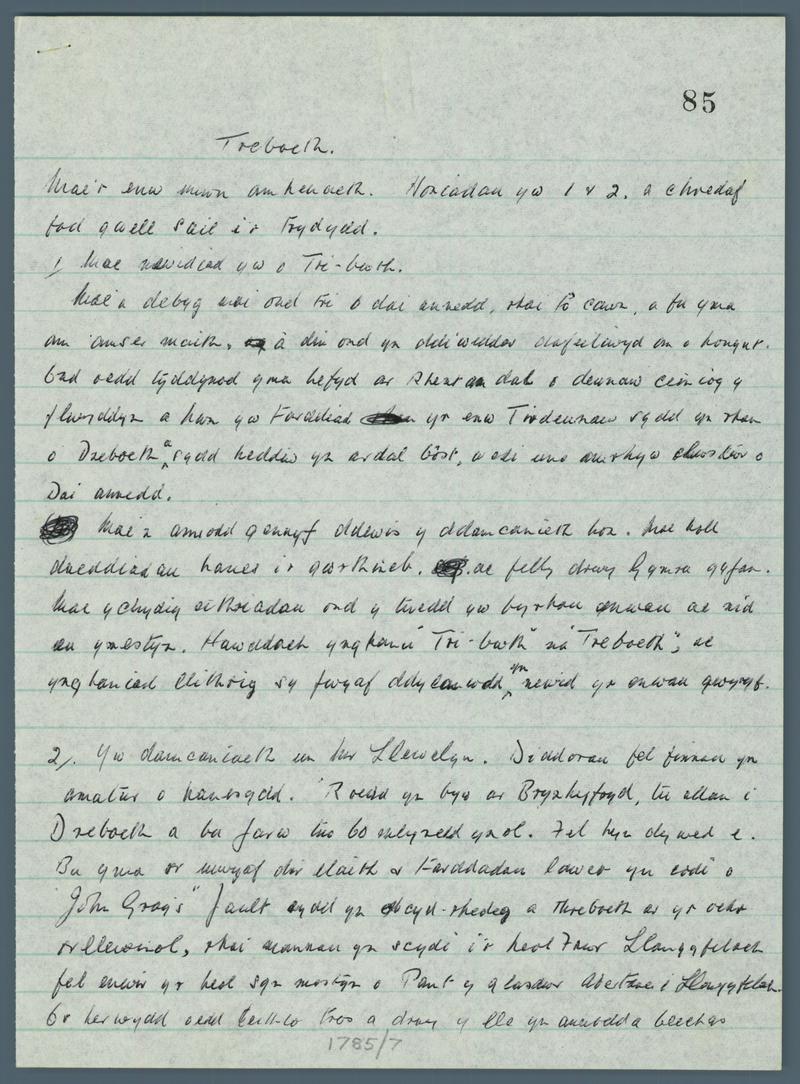 85
Treboeth.
Mae'r enw mewn amheuaeth. Honiadau yw 1 & 2. a chredaf
fod gwell sail i'r trydydd.
1/ Mae newidiad yw o Tri-bwth.
Mae'n debyg mai ond tri o dai annedd, rhai to cawn, a fu yma
am amser maith, a dim ond yn ddiweddar dafeiliwyd on o honynt.
Ond oedd tyddynod yma hefyd ar rhent an dal o deunaw ceiniog y
flwyddyn a hwn yw tarddiad yr enw Tirdeunaw sydd yn rhan
o Dreboeth a sydd heddiw yn ardal bost, wedi uno amrhyw clwstwr o
Dai annedd.
Mae'n amodd gennyf ddewis y ddamcaniaeth hon. Mae holl
dueddiadau hanes i'r gwrthineb. ac felly drwy Gymru gyfan.
Mae ychydig eithriadau ond y duedd yw byrhau enwau ac nid
eu ymestyn. Hawddach ynghanu "Tri-bwth" na "Treboeth", ac
ynghaniad llithrig sy fwyaf ddylanwdd yn newid yr enwau gwreiddiol.
2/. Yw damcaniaeth un Mr Llewelyn. Diddorau fel finnau yn
amatur o hanesydd. 'Roedd yn byw ar Brynhyfryd, tu allan i
Dreboeth a bu farw tua 60 mlynedd ynol. Fel hyn dywed e.
Bu yma ar mwyaf dir llaith & tarddadau lawer yn codi o
"John Gray's" fault sydd yn cyd-rhedeg a Threboeth ar yr ochr
orllewinol, rhai mannau yn scydi i'r heol Fawr Llangyfelach
fel enwir yr heol syn mostyn o Pant y glasdwr Abertawe i Llangyfelach.
Or herwydd oedd tros a drwy y lle yn
1785/7